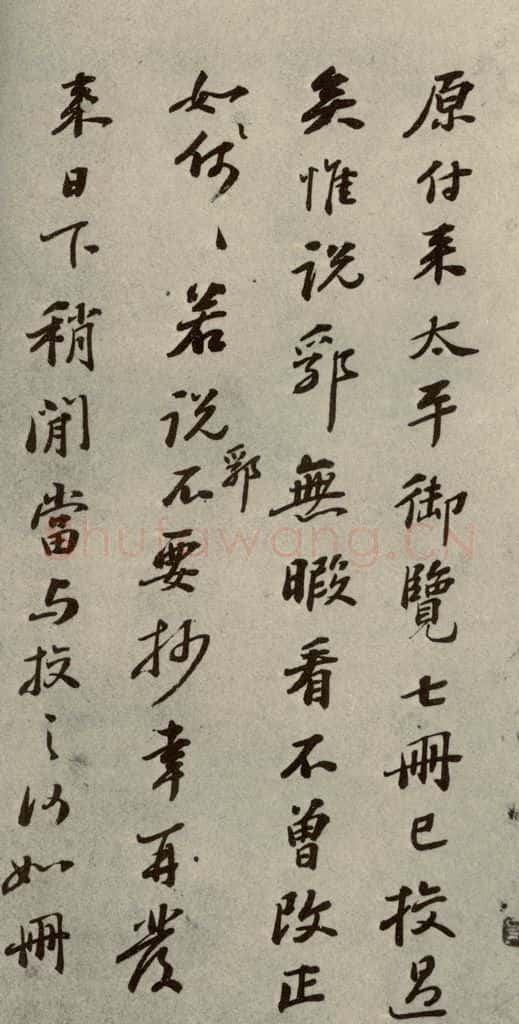 原付来太平御覽七冊已挍過
矣惟说郛無暇看不曾改正
如〻何〻若说郛不要抄幸再發
来日下稍閒當与挍之何如冊
shufawang.CN